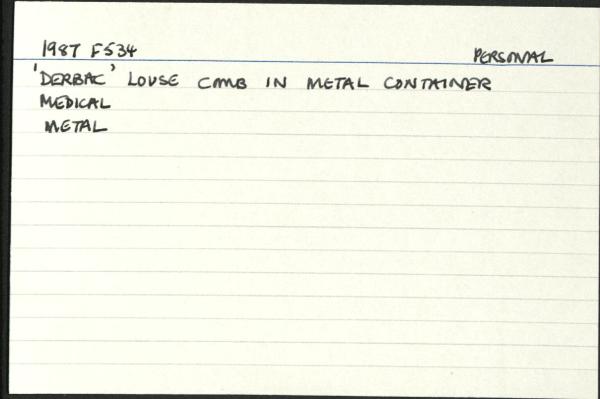 1987 F534
PERSONAL
'DERBAC' LOUSE COMB IN METAL CONTAINER
MEDICAL
METAL